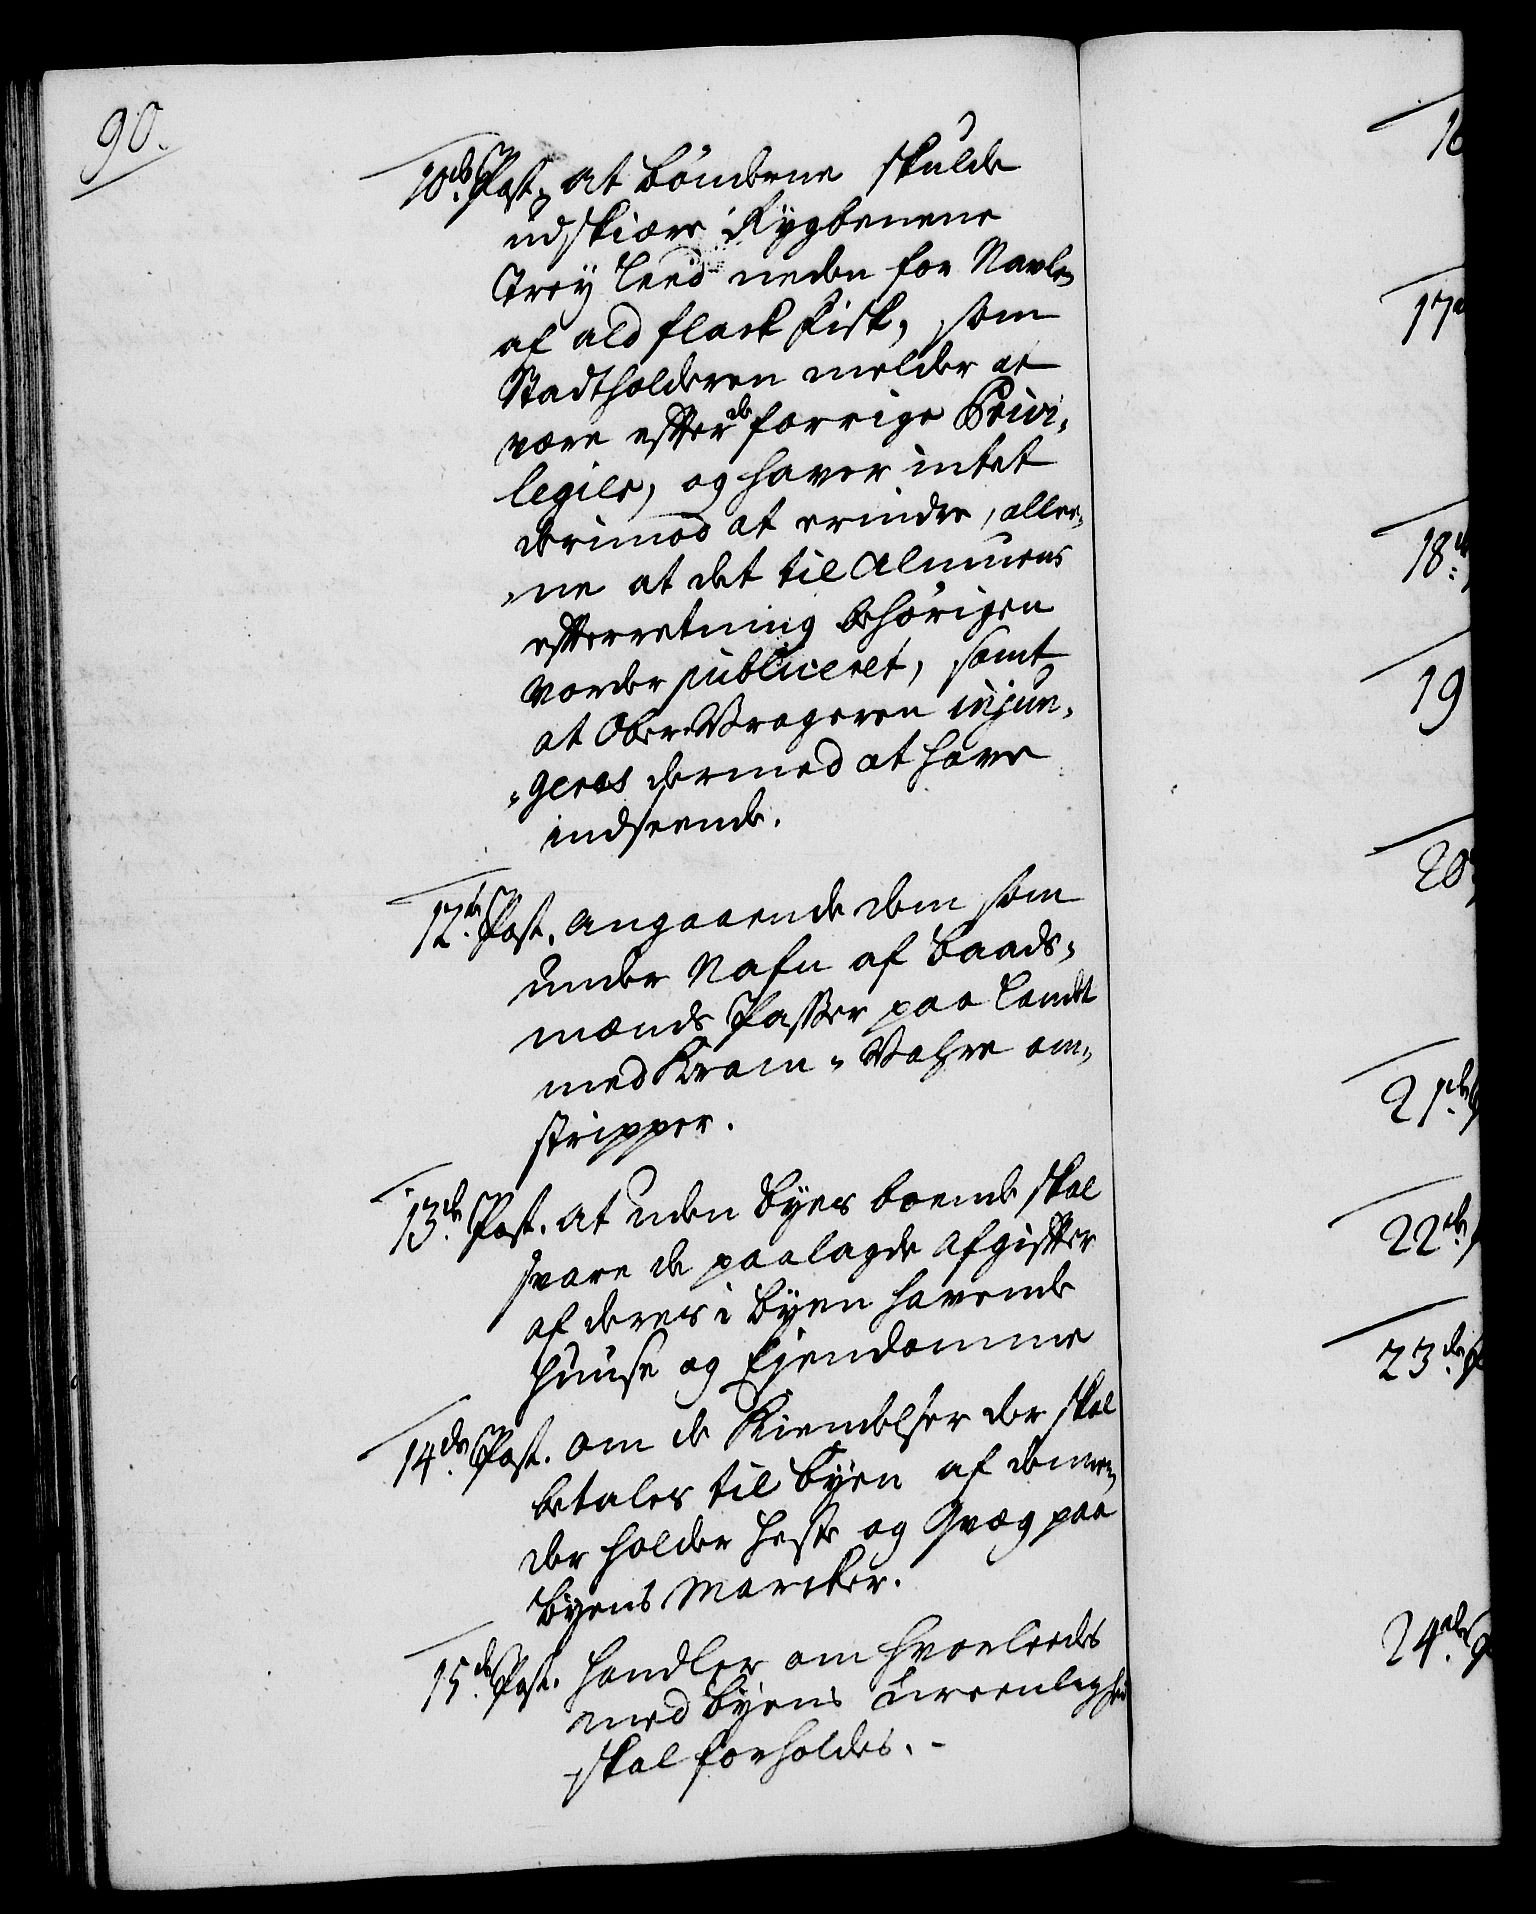 90.
10de Post, at bönderne skulde
udskiære Rygbenene
Trey Leed neden for Navlen
af ald flack fisk, som
Stadtholderen melder at
være efter de forrige Privi-
legier, og haver intet
derimod at erindre, alle-
-ne at det til Almuens
efterretning behörigen
vorder publiceret, samt
at Ober-Vrageren injun-
-geres dermed at have
indseende.
12te Post. angaaende dem som
under Nafn af Baads-
mænds Passer paa Landet
med Kram-Vahre om-
stripper.
13de Post. at uden Byes boende skal
svare de paalagde Afgifter
af deres i Byen havende
Huuse og Ejendomme
14de Post. om de Kiendelser der skal
betales til Byen af dennem
der holder Heste og Qvæg paa
Byens Marcker.
15de Post. handler om hvorleedes
med Byens Ureenlighed
skal forholdes.-
16
17
18de
19
20
21de
22de
23de
24de